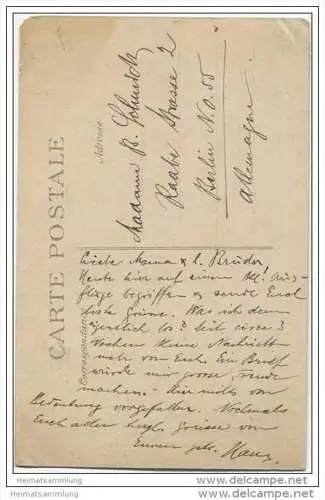 CARTE POSTALE
Correspondance
Adresse
Madame B. Schmidt
Raabe Strasse 2
Berlin N.O. 55
Allemagne.
Liebe Mama & l. Brüder
Heute hier auf einem kl. Aus-
fluge begriffen & sende Euch
liebe Grüsse. Was ist denn
eigentlich los? Seit circa 3
Wochen keine Nachricht
mehr von Euch. Ein Brief
würde mir grosse Freude
machen. Hier nichts von
Bedeutung vorgefallen. Nochmals
Euch allen herzl. Grüsse von
Eurem gel. Hans
Heimatsammlung
www.heimatsammlung.de
Heimatsammlung
www.heimatsammlung.de